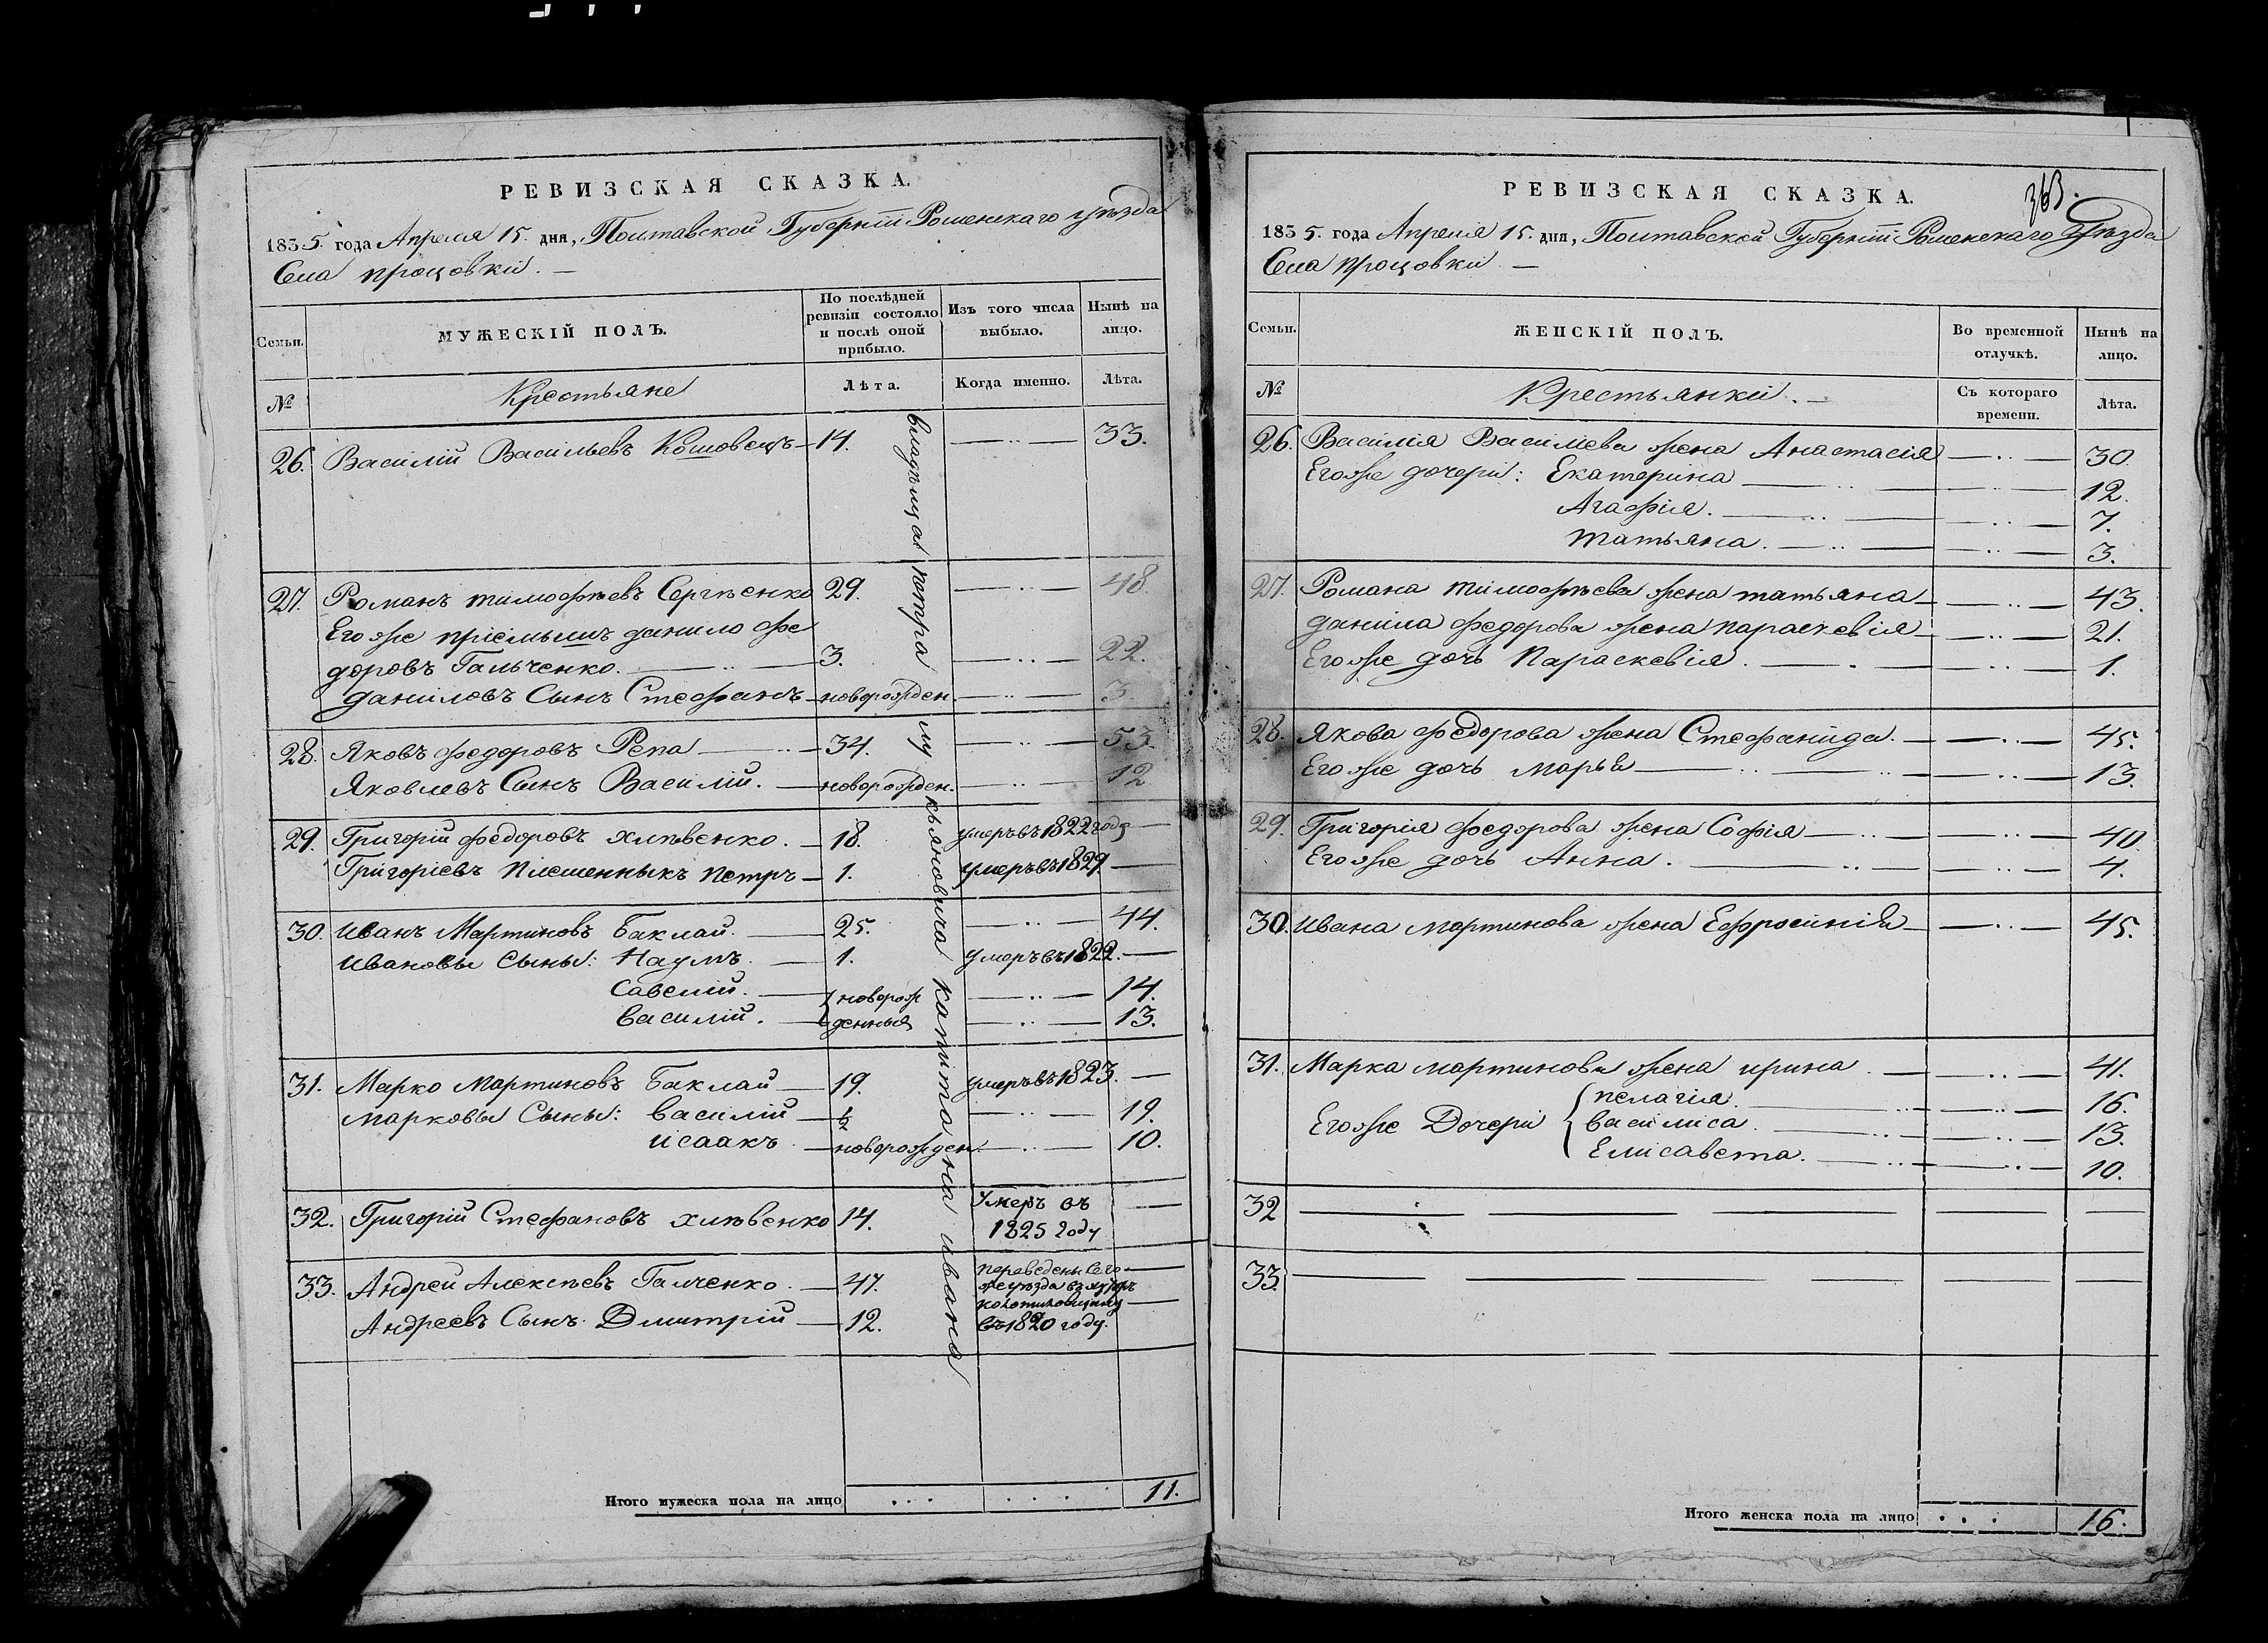 РЕВИЗСКАЯ СКАЗКА.
1835. года Апреля 15. дня, Полтавской Губерніи Роменскаго уѣзда
Села процовки. —
Семьи.
МУЖЕСКІЙ ПОЛЪ.
По послѣдней ревизіи состояло и послѣ оной прибыло.
Изъ того числа выбыло.
Нынѣ на лицо.
№
Крестьяне
Лѣта.
Когда именно.
Лѣта.
26. Василій Васильевъ Кошовецъ — 14. — 33.
27. Романъ тимофѣевъ Сергѣенко 29. — 48.
Его же пріемышъ данило фе
доровъ Гальченко. — 3. — 22.
даниловъ Сынъ Стефанъ — новорожден. — 3.
28. Яковъ федоровъ Репа — 34. — 53.
Яковлевъ Сынъ Василій. — новорожден. — 12
29. Григорій федоровъ хлѣвенко. — 18. умеръ въ 1822 году —
Григоріевъ племенникъ петръ — 1. умеръ въ 1829. —
30. иванъ Мартиновъ Баклай. — 25. — 44.
ивановы сыны: Наумъ. — 1. умеръ въ 1822. —
Савелій. — новорож — 14.
василій. — денныя — 13.
31. Марко мартиновъ Баклай — 19. умеръ въ 1823. —
марковы Сыны: василій — ½ — 19.
исаакъ — новорожден. — 10.
32. Григорій Стефановъ хлѣвенко 14. Умеръ въ —
1825 году
33. Андрей Алексѣевъ Галченко. — 47. переведены того —
же уѣзда въ хуторъ
Андреевъ Сынъ. Дмитрій — 12. —
въ 1820 году.
владѣльца петра лукьяновича капитана ивана
Итого мужеска пола на лицо . . . . . . . 11.
РЕВИЗСКАЯ СКАЗКА.
363.
1835. года Апреля 15. дня, Полтавской Губерніи Роменскаго Уѣзда
Села процовки. —
Семьи.
ЖЕНСКІЙ ПОЛЪ.
Во временной отлучкѣ.
Нынѣ на лицо.
№
Крестьянки. —
Съ котораго времени.
Лѣта.
26. Василія Васильева жена Анастасія — 30.
Его же дочери: Екатерина — 12.
Агафія. — 7.
татьяна. — 3.
27. Романа тимофѣева жена татьяна — 43.
данила федорова жена параскевія — 21.
Его же дочь Параскевія. — 1.
28. Якова федорова жена Стефанида. — 45.
Его же дочь марья — 13.
29. Григорія федорова жена Софія — 40
Его же дочь Анна. — 4.
30. ивана мартинова жена Ефросинія — 45.
31. Марка мартинова жена ирина. — 41.
Его же Дочери пелагія. — 16.
василиса. — 13.
Елисавета. — 10.
32 —
33. —
Итого женска пола на лицо . . . 16.